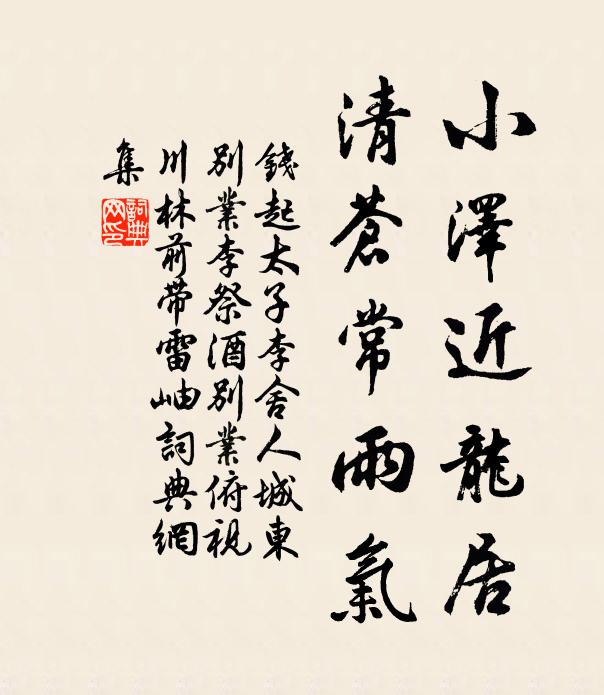 小澤近龍居
清蒼常雨氣
錢起太子李舍人城東
別業李祭酒別業俯視
川林前帶雷岫詞典網
集
詞典網印